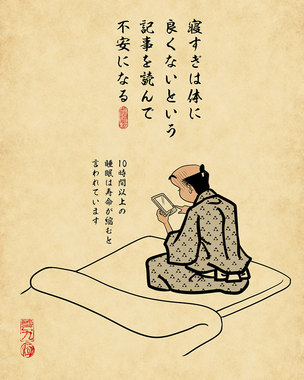 寝すぎは体に
良くないという
記事を読んで
不安になる
10時間以上の
睡眠は寿命が縮むと
言われています